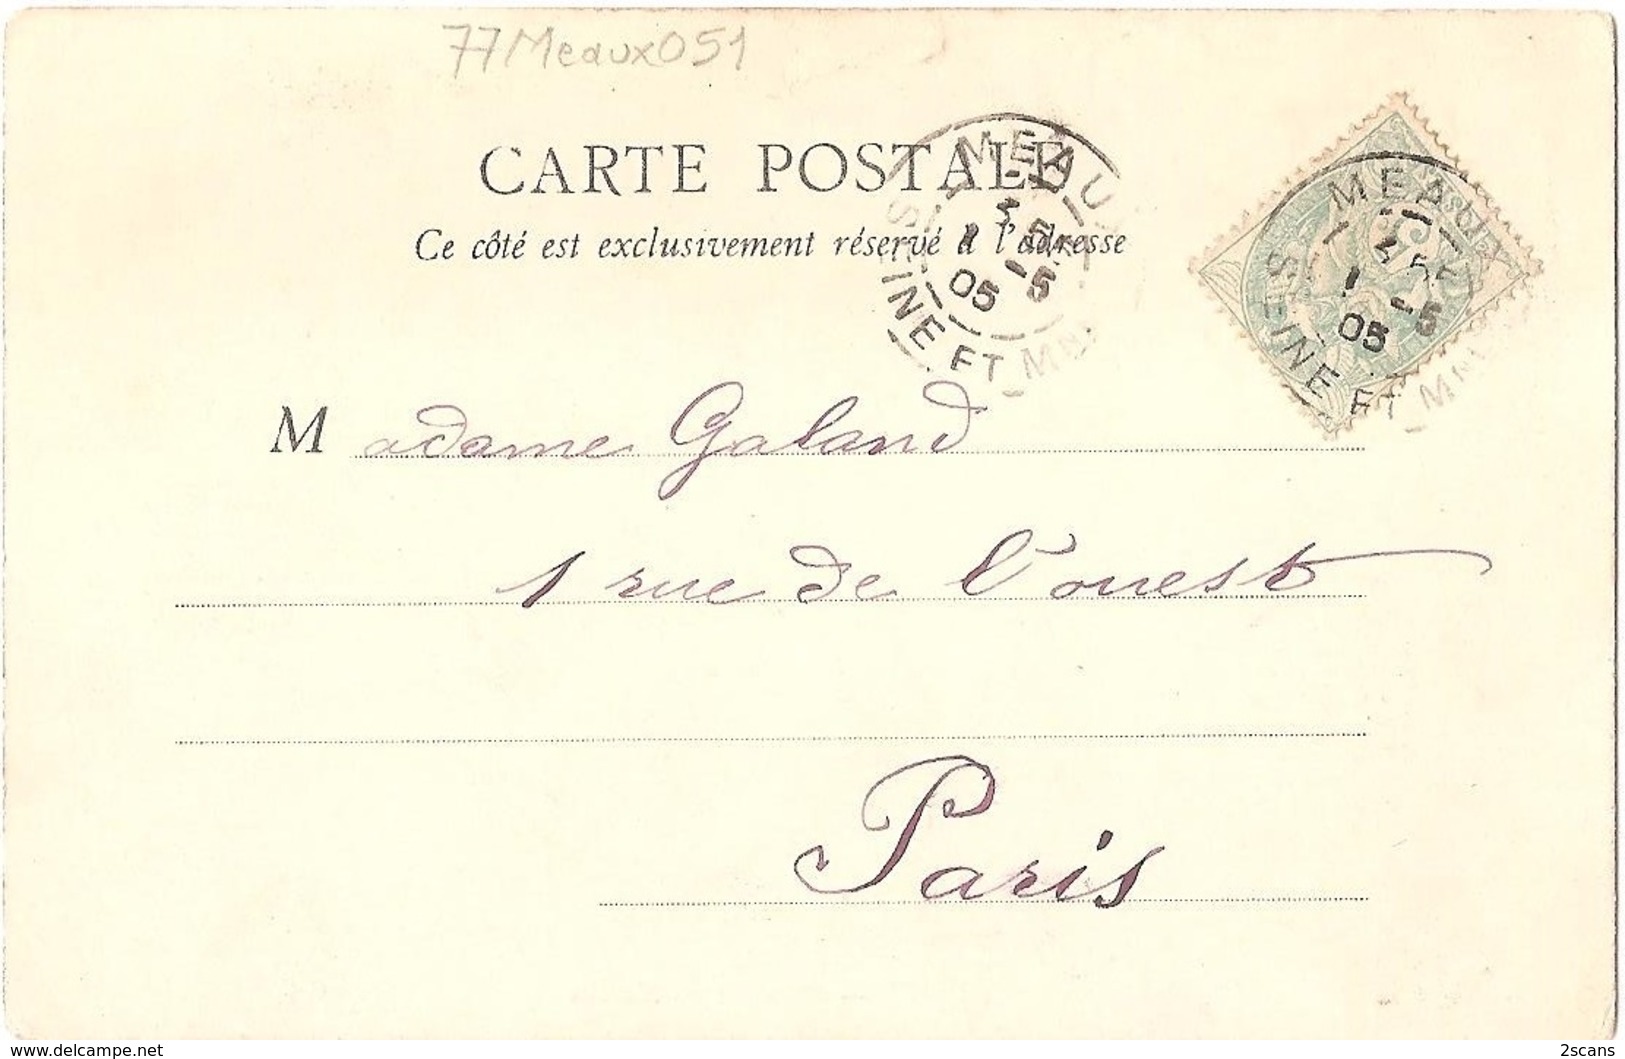 77Meaux051
CARTE POSTALE
Ce côté est exclusivement réservé à l'adresse
MEAUX
SEINE ET
05
MEAUX
SEINE ET
05
Madame Galand
1 rue de l'ouest
Paris
www.delcampe.net
2scans